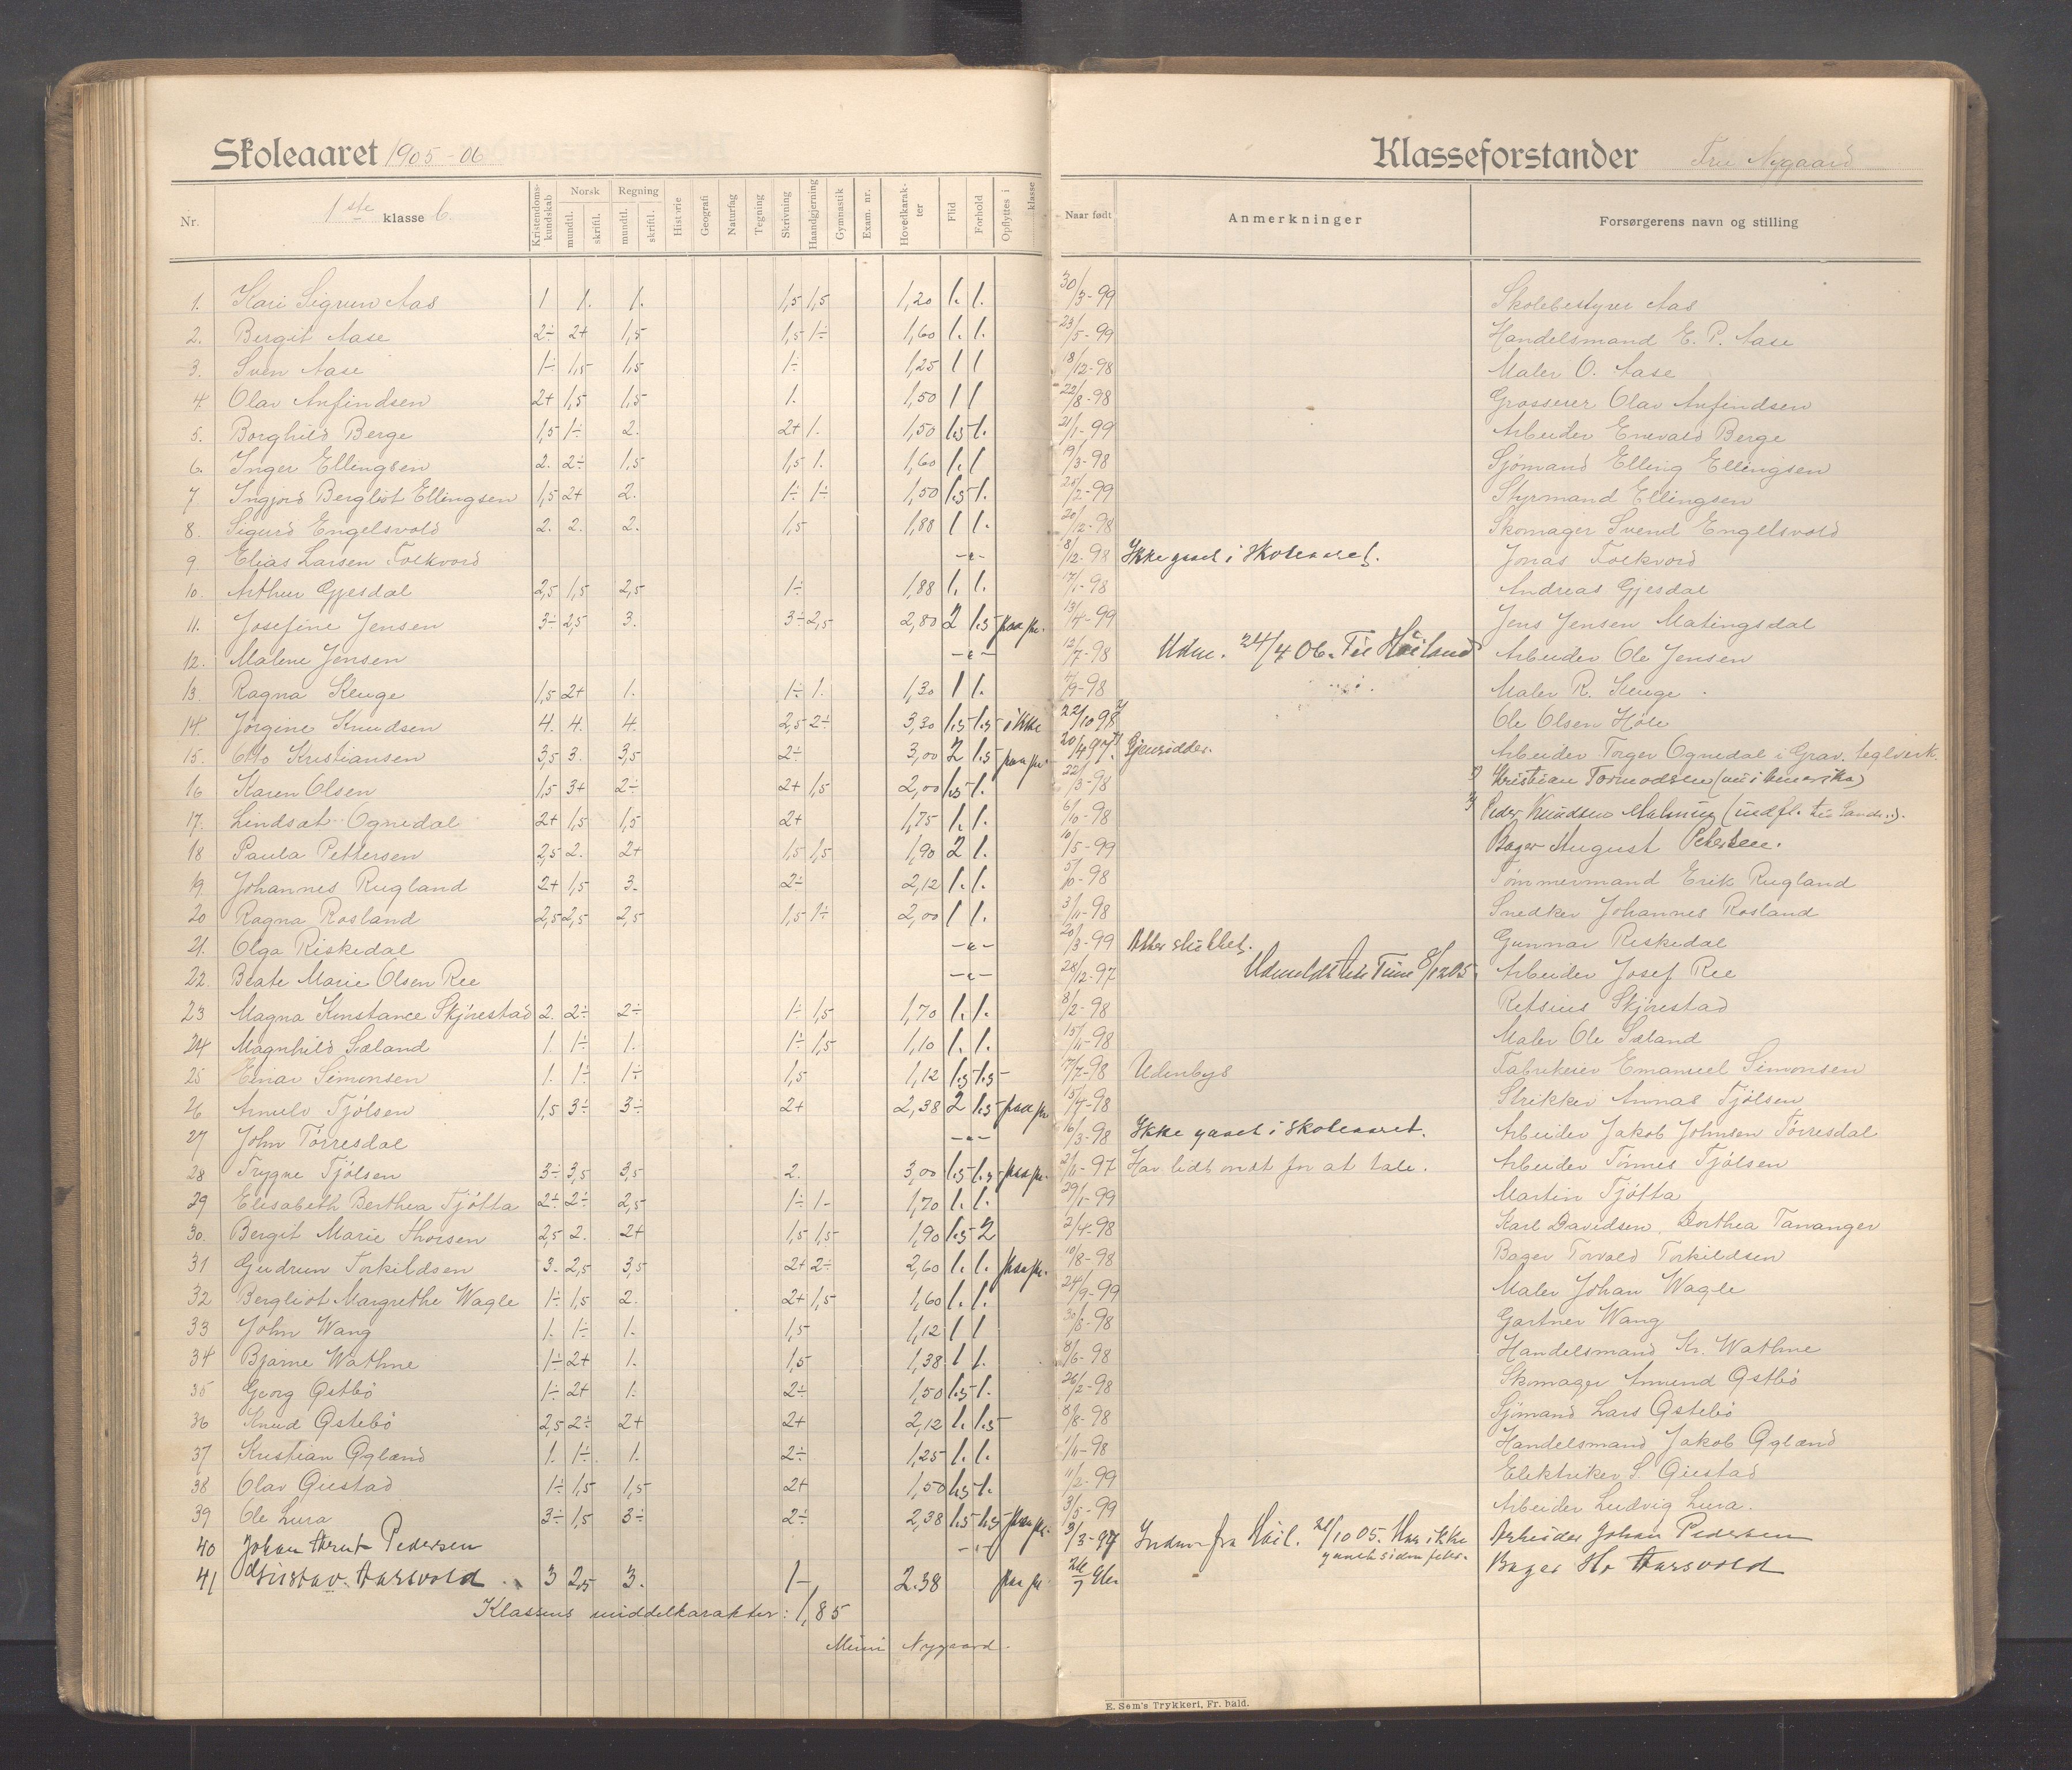 Skoleaaret 1905-06
Klasseforstander Fru Nygaard
Nr. 1ste klasse b. Kristendomskundskab Norsk mundtl. skriftl. Regning mundtl. skriftl. Historie Geografi Naturfag Tegning Skrivning Haandgjerning Gymnastik Exam. nr. Hovedkarakter Flid Forhold Opflyttes i klasse Naar født Anmerkninger Forsørgerens navn og stilling
1. Kari Sigrun Aas 1 1. 1. 1,5 1,5 1,20 1. 1. 30/3-99 Skolebestyrer Aas
2. Bergit Aase 2÷ 2+ 1,5 1,5 1÷ 1,60 1. 1. 23/5-99 Handelsmand E. P. Aase
3. Sven Aase 1÷ 1,5 1,5 1÷ 1,25 1 1 18/12-98 Maler O. Aase
4. Olav Anfindsen 2+ 1,5 1,5 1. 1,50 1 1 22/8-98 Grosserer Olav Anfindsen
5. Borghild Berge 1,5 1÷ 2. 2+ 1. 1,50 1.5 1. 21/1-99 Arbeider Enevald Berge
6. Inger Ellingsen 2. 2÷ 1,5 1,5 1. 1,60 1. 1 19/3-98 Sjömand Elling Ellingsen
7. Ingjord Bergliot Ellingsen 1,5 2+ 2. 1÷ 1÷ 1,50 1.5 1. 25/2-99 Styrmand Ellingsen
8. Sigurd Engelsvold 2. 2. 2. 1,5 1,88 1 1. 20/2-98 Skomager Svend Engelsvold
9. Elias Larsen Folkvord -"- 8/12-98 Ikke gaaet i skoleaaret. Jonas Folkvord
10. Arthur Gjesdal 2,5 1,5 2,5 1÷ 1,88 1. 1. 17/1-98 Andreas Gjesdal
11. Josefine Jensen 3÷ 2,5 3. 3÷ 2,5 2,80 2 1.5 paa pr. 13/4-99 Jens Jensen Matingsdal
12. Malene Jensen -"- 12/7-98 Udm. 24/4 06. Til Höiland Arbeider Ole Jensen
13. Ragna Kluge 1,5 2+ 1. 1÷ 1. 1,30 1 1. 4/9-98 Maler R. Kluge
14. Jörgine Knudsen 4. 4. 4. 2,5 2÷ 3,30 1.5 1.5 ikke 22/10 98 Ole Olsen Höle
15. Otto Kristiansen 3,5 3. 3,5 2÷ 3,00 2 1.5 paa pr. 20/4 97. Gjensidder. Arbeider Torger Ognedal i Grav. teglverk.
16 Karen Olsen 1,5 3+ 2÷ 2+ 1,5 2,00 1.5 1. 22/3-98 Kristian Tormodsen (nu i Amerika)
17. Lindsat Ognedal 2+ 1,5 1,5 2+ 1,75 1. 1. 6/10-98 Peder Knudsen Malming (indfl. til Sandn.).
18 Paula Pettersen 2,5 2. 2+ 1,5 1,5 1,90 2 1. 10/5-99 Bager August Petersen.
19 Johannes Rugland 2+ 1,5 3. 2÷ 2,12 1. 1. 5/10-98 Tömmermand Erik Rugland
20 Ragna Rosland 2,5 2,5 2,5 1,5 1÷ 2,00 1 1. 3/11-98 Snedker Johannes Rosland
21. Olga Riskedal -"- 20/3-99 Atter sluttet. Gunnar Riskedal
22. Beate Marie Olsen Ree -"- 28/12-97 Udmeldt til Time 8/12 05. Arbeider Josef Ree
23 Magna Konstance Skjörestad 2. 2÷ 2÷ 1÷ 1,5 1,70 1. 1. 8/2-98 Retsius Skjörestad
24 Magnhild Sæland 1. 1÷ 1. 1÷ 1,5 1,10 1. 1. 15/11-98 Maler Ole Sæland
25 Einar Simonsen 1. 1÷ 1÷ 1,5 1,12 1.5 1.5 17/7-98 Udenbys Fabrikeier Emanuel Simonsen
26 Arnulv Tjölsen 1,5 3÷ 3÷ 2+ 2,38 2 1.5 paa pr. 15/4-98 Strikker Annas Tjölsen
27 John Törresdal -"- 16/3-98 Ikke gaaet i skoleaaret. Arbeider Jakob Johnsen Törresdal
28 Trygve Tjölsen 3÷ 3,5 3,5 2. 3,00 1.5 1.5 paa pr. 21/11-97 Har lidt ondt for at tale. Arbeider Tönnes Tjölsen
29 Elisabeth Berthea Tjötta 2÷ 2÷ 2,5 1÷ 1- 1,70 1. 1. 29/1-99 Martin Tjötta
30. Bergit Marie Thorsen 2,5 2. 2+ 1,5 1,5 1,90 1.5 2 2/4-98 Karl Davidsen. Dorthea Tananger
31 Gudrun Torkildsen 3. 2,5 3,5 2+ 2÷ 2,60 1. 1. paa pr. 10/8-98 Bager Torvald Torkildsen
32 Bergliot Margrethe Wagle 1÷ 1,5 2. 2+ 1,5 1,60 1. 1. 24/9-99 Maler Johan Wagle
33 John Wang 1. 1÷ 1. 1,5 1,12 1 1 30/8-98 Gartner Wang
34 Bjarne Wathne 1÷ 2+ 1. 1,5 1,38 1 1. 8/6-98 Handelsmand Kr. Wathne
35 Georg Østbö 1÷ 2+ 1. 2÷ 1,50 1.5 1. 26/2-98 Skomager Amund Østbö
36 Knud Østebö 2,5 2÷ 2+ 2+ 2,12 1. 1.5 8/8-98 Sjömand Lars Østebö
37 Kristian Øglænd 1. 1÷. 1. 2÷ 1,25 1. 1. 1/11-98 Handelsmand Jakob Øglænd
38 Olav Giestad 1÷ 1,5 1,5 2+ 1,50 1.5 1. 11/2-99 Elektriker S. Giestad
39 Ole Lura 3÷ 1,5 3÷ 2÷ 2,38 1.5 1.5 paa pr. 3/5-99 Arbeider Ludvig Lura.
40 Johan Arnt Pedersen -"- 3/3-97 Indm fra Höil. 21/10 05. Har ikke Arbeider Johan Pedersen
gaaet siden febr.
41 Gustav Aarsvold 3 2,5 3. 1- 2.38 paa pr 26/7 98 Bager Hr Aarsvold
Klassens middelkarakter: 1,85
Mimi Nygaard.
E. Sem's Trykkeri, Fr. hald.